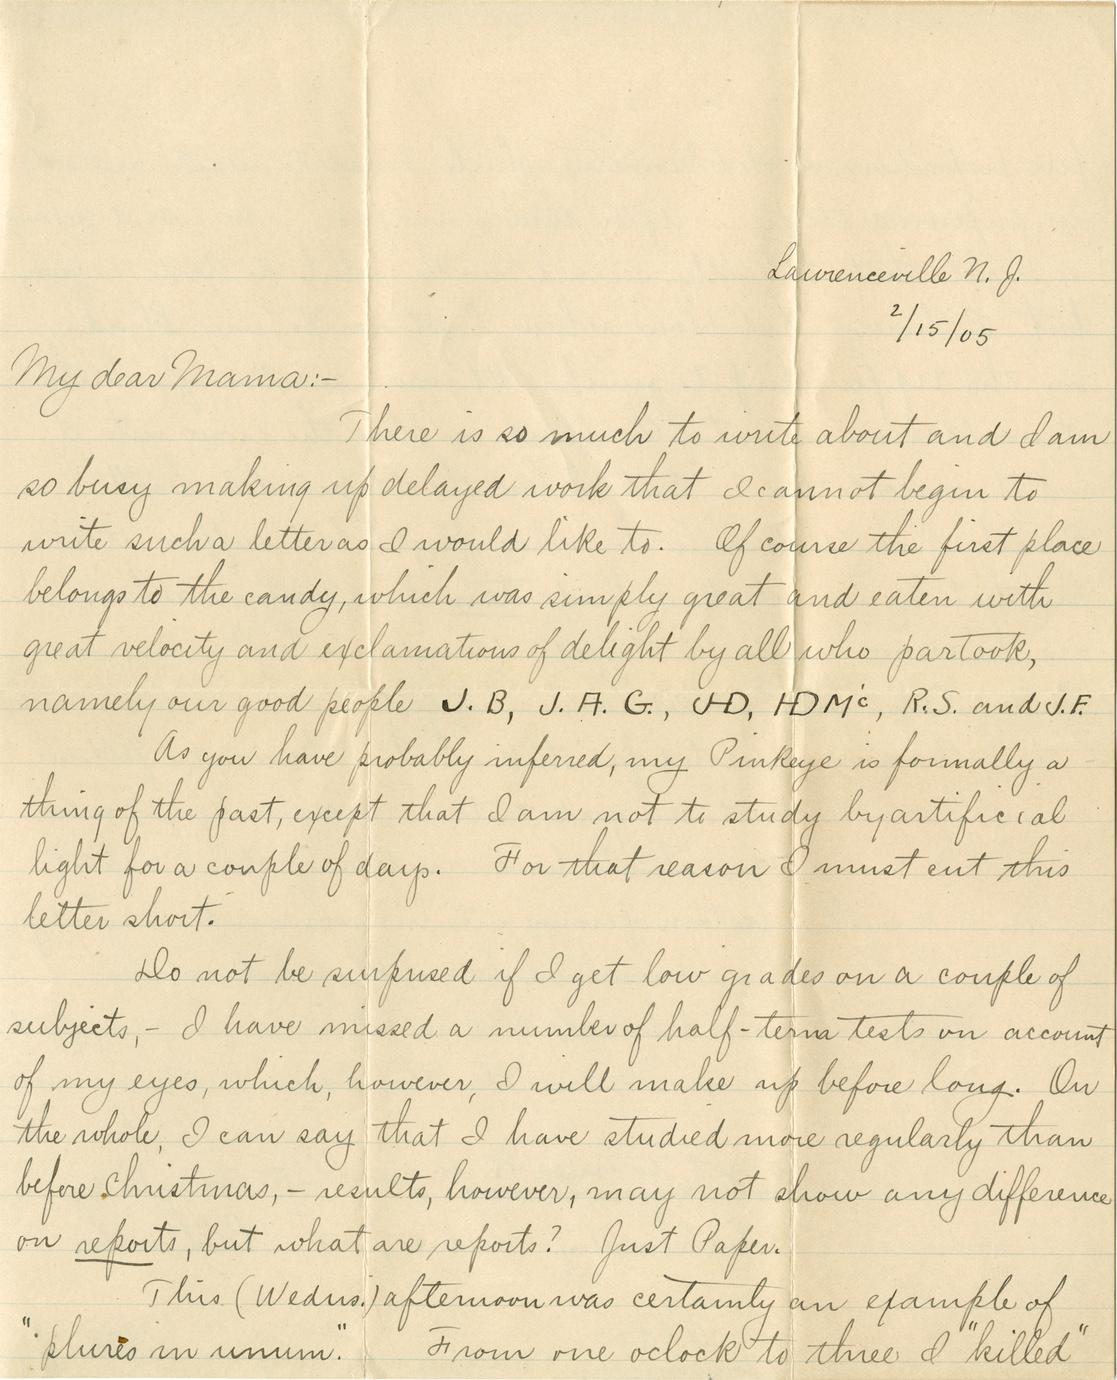 Lawrenceville N. J.
2/15/05
My dear Mama:-
There is so much to write about and I am
so busy making up delayed work that I cannot begin to
write such a letter as I would like to. Of course the first place
belongs to the candy, which was simply great and eaten with
great velocity and exclamations of delight by all who partook,
namely our good people J. B, J. A. G., JD, HDMc, R.S. and J.F.
As you have probably inferred, my Pinkeye is formally a
thing of the past, except that I am not to study by artificial
light for a couple of days. For that reason I must cut this
letter short.
Do not be surprised if I get low grades on a couple of
subjects,- I have missed a number of half-term tests on account
of my eyes, which, however, I will make up before long. On
the whole, I can say that I have studied more regularly than
before Christmas,- results, however, may not show any difference
on reports, but what are reports? Just Paper.
This (Wednes.) afternoon was certainly an example of
"plures in unum." From one oclock to three I "killed"